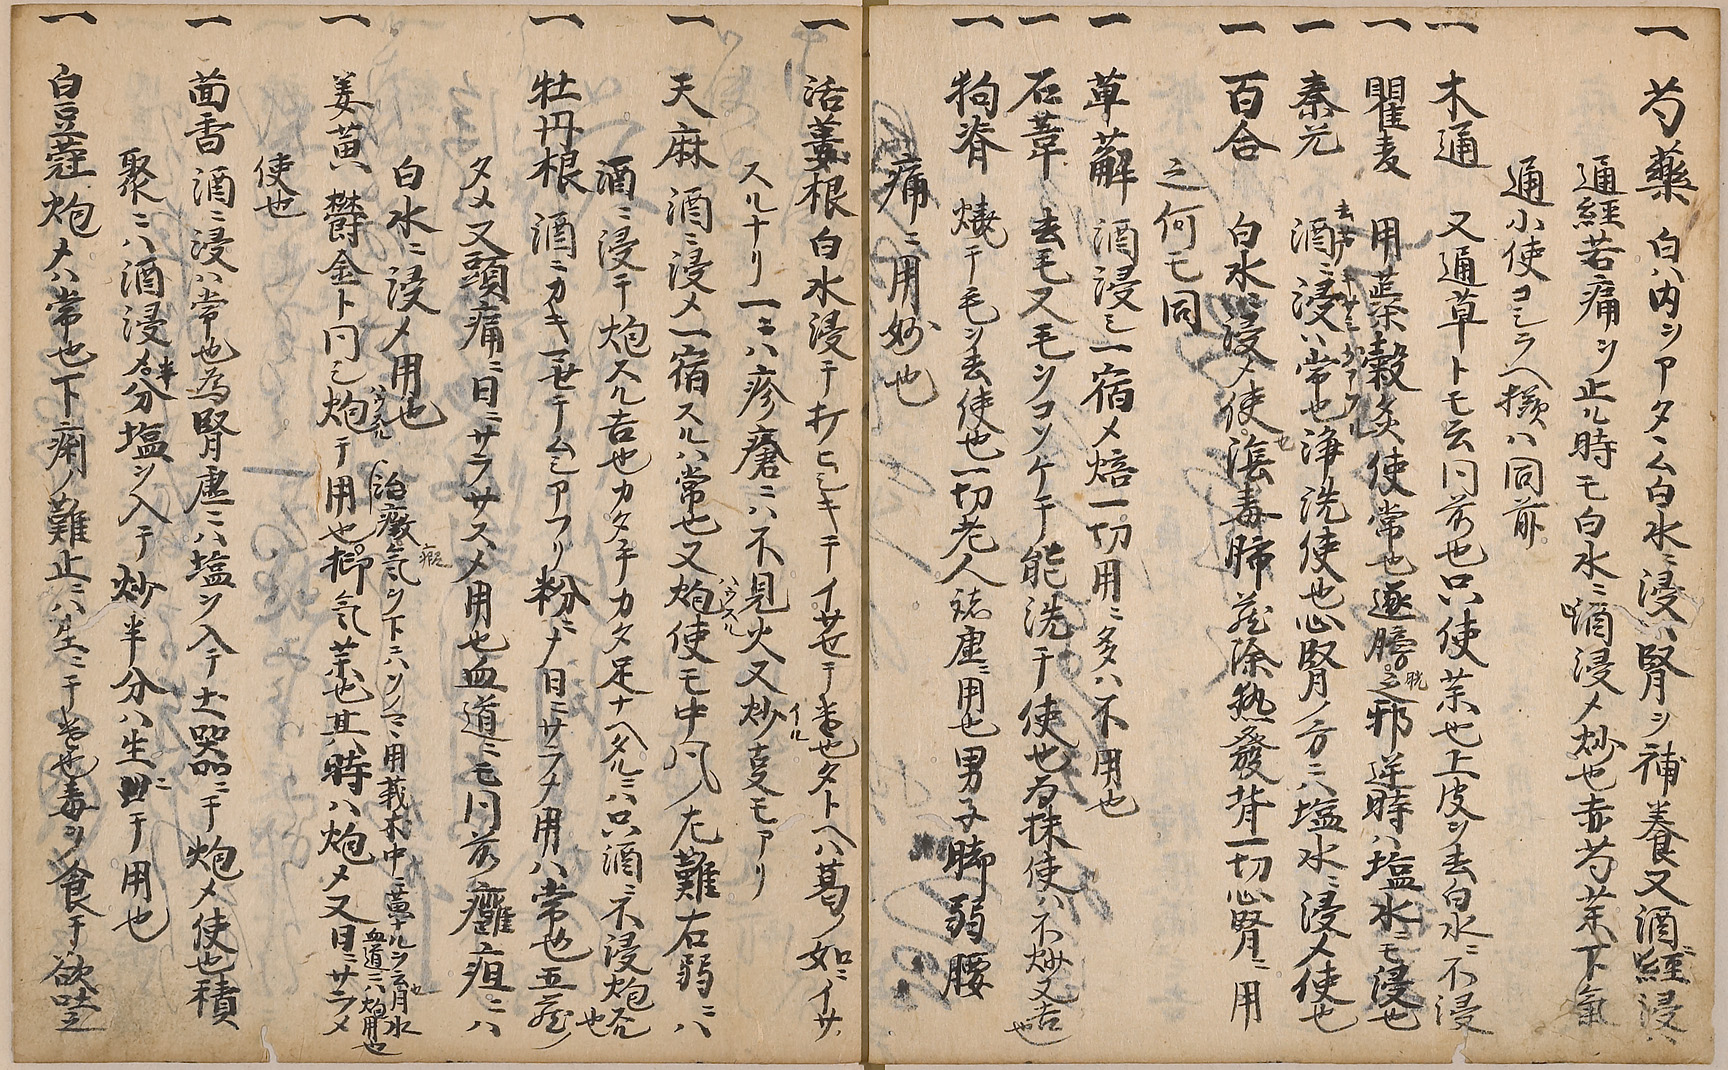 一 芍藥 白ハ内ヲアタヽム白水ニ浸ハ腎ヲ補養又酒ニ浸ハ經
通經若痛ヲ止ル時モ白水ニ酒浸メ炒也赤芍薬下氣
通小使コシラヘ様ハ同前
一 木通 又通草トモ云同前也只使薬也上皮ヲ去白水ニ不浸
一 瞿麦 用蘂穀炙使常也逐膀胱之邪逆時ハ塩水ニモ浸也
一 秦艽 酒ニ浸ハ常也浄洗使也心腎ノ方ニハ塩水ニ浸メ使也
一 百合 白水ニ浸メ使也毒肺蔵除熱發背一切心腎ニ用
之何モ同
一 萆薢 酒浸シ一宿メ焙一切用ニ多ハ不用也
一 石葦 去毛又毛ヲコソケテ能洗干使也為抹使ハ不炒又吉也
一 狗脊 燒テ毛ヲ去使也一切老人諸虚ニ用也男子脚弱腰
痛ニ用妙也
一 活蔞根 白水浸テ打ヒシキテイサセテ煮也タトヘハ葛ノ如ニイサ
スルナリ一ニハ疹瘡ニハ不見火又炒支モアリ
一 天麻 酒ニ浸メ一宿スルハ常也又炮使モ中風左難右弱ニハ
酒ニ浸テ炮スル吉也カタ手カタ足ナヘタルニハ只酒ニ不浸炮吉也
一 牡丹根 酒ニカキマセテムシアフリ粉ニメ日ニサラメ用ハ常也五蔵ノ
タメ又頭痛ニ日ニサラサスメ用也血道ニモ同前癰疽ニハ
白水ニ浸メ用也
一 姜黄ハ 欝金ト同シ炮テ用也脚氣薬也其時ハ炮メ又日ニサラメ
使也
一 茴香 酒ニ浸ハ常也為腎虚ニハ塩ヲ入テ土器ニテ炮メ使也積
聚ニハ酒浸半分塩ヲ入テ炒半分ハ生ニテ用也
一 白豆蔲 炮メハ常也下痢ノ難止ニハ生ニテ煮也毒ヲ食テ欲吐